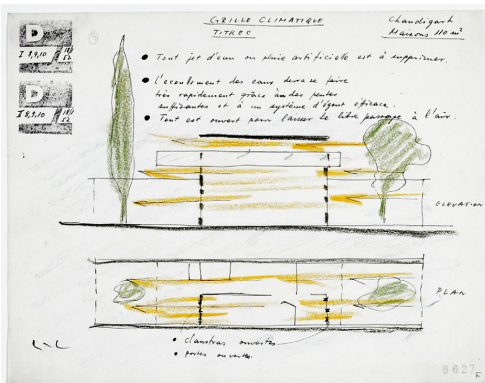 GRILLE CLIMATIQUE
TITRE C
Chandigarh
Maisons 110 m².
D
I 8,9,10
D
I 8,9,10
• Tout jet d'eau ou pluie artificielle est à supprimer.
• L'écoulement des eaux devra se faire
très rapidement grâce à des pentes
suffisantes et à un système d'égout efficace.
• Tout est ouvert pour laisser le libre passage à l'air.
ELEVATION
PLAN
• claustras ouvertes.
• portes ouvertes.
5627
F